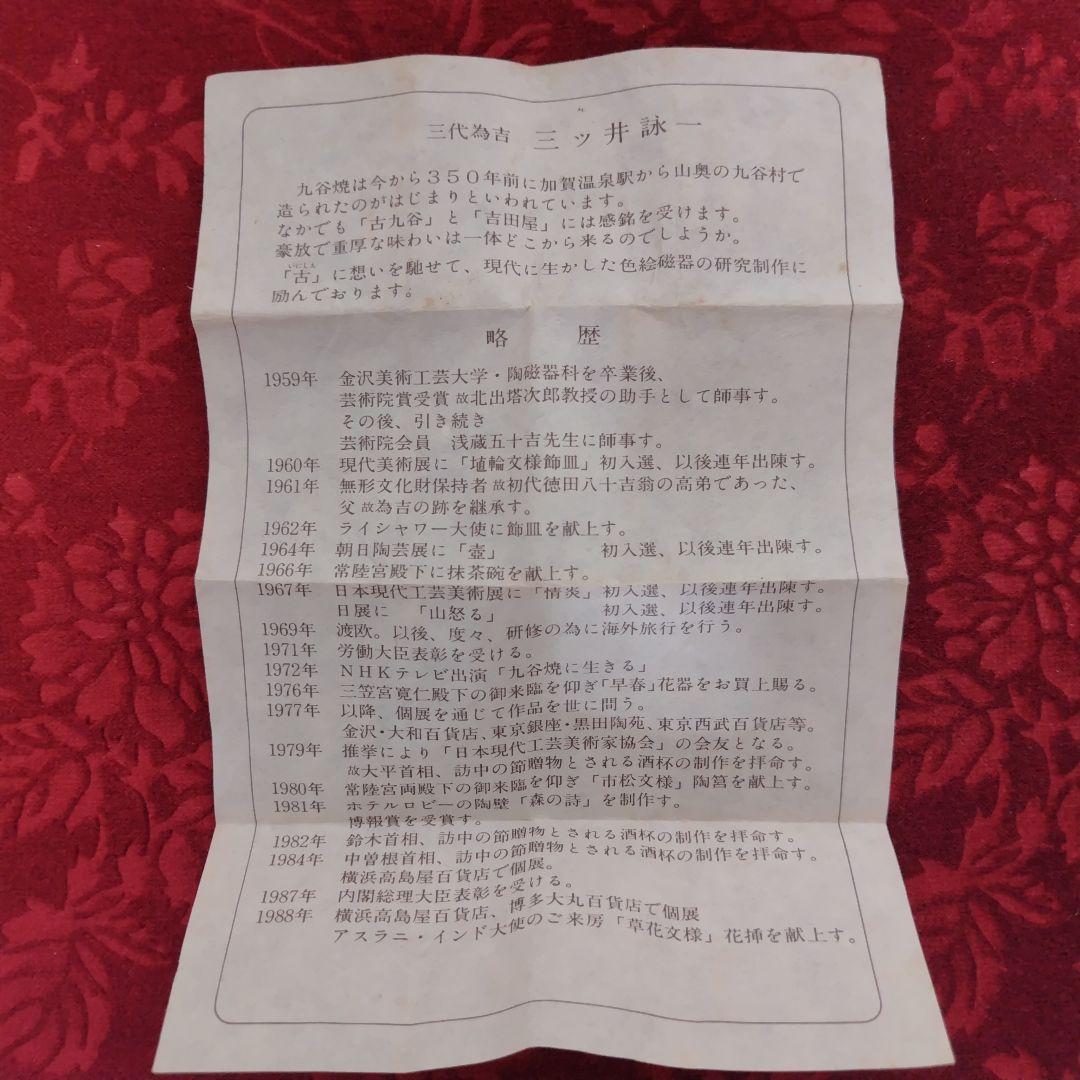 三代為吉 三ッ井詠一
九谷焼は今から350年前に加賀温泉駅から山奥の九谷村で
造られたのがはじまりといわれています。
なかでも「古九谷」と「吉田屋」には感銘を受けます。
豪放で重厚な味わいは一体どこから来るのでしようか。
「古」に想いを馳せて、現代に生かした色絵磁器の研究制作に
励んでおります。
略 歴
1959年 金沢美術工芸大学・陶磁器科を卒業後、
芸術院賞受賞 故北出塔次郎教授の助手として師事す。
その後、引き続き
芸術院会員 浅蔵五十吉先生に師事す。
1960年 現代美術展に「埴輪文様飾皿」初入選、以後連年出陳す。
1961年 無形文化財保持者 故初代徳田八十吉翁の高弟であった、
父 故為吉の跡を継承す。
1962年 ライシャワー大使に飾皿を献上す。
1964年 朝日陶芸展に「壺」 初入選、以後連年出陳す。
1966年 常陸宮殿下に抹茶碗を献上す。
1967年 日本現代工芸美術展に「情炎」初入選、以後連年出陳す。
日展に 「山怒る」 初入選、以後連年出陳す。
1969年 渡欧。以後、度々、研修の為に海外旅行を行う。
1971年 労働大臣表彰を受ける。
1972年 NHKテレビ出演「九谷焼に生きる」
1976年 三笠宮寛仁殿下の御来臨を仰ぎ「早春」花器をお買上賜る。
1977年 以降、個展を通じて作品を世に問う。
金沢・大和百貨店、東京銀座・黒田陶苑、東京西武百貨店等。
1979年 推挙により「日本現代工芸美術家協会」の会友となる。
故大平首相、訪中の節贈物とされる酒杯の制作を拝命す。
1980年 常陸宮両殿下の御来臨を仰ぎ「市松文様」陶筥を献上す。
1981年 ホテルロビーの陶壁「森の詩」を制作す。
博報賞を受賞す。
1982年 鈴木首相、訪中の節贈物とされる酒杯の制作を拝命す。
1984年 中曽根首相、訪中の節贈物とされる酒杯の制作を拝命す。
横浜高島屋百貨店で個展。
1987年 内閣総理大臣表彰を受ける。
1988年 横浜高島屋百貨店、博多大丸百貨店で個展
アスラニ・インド大使のご来房「草花文様」花挿を献上す。